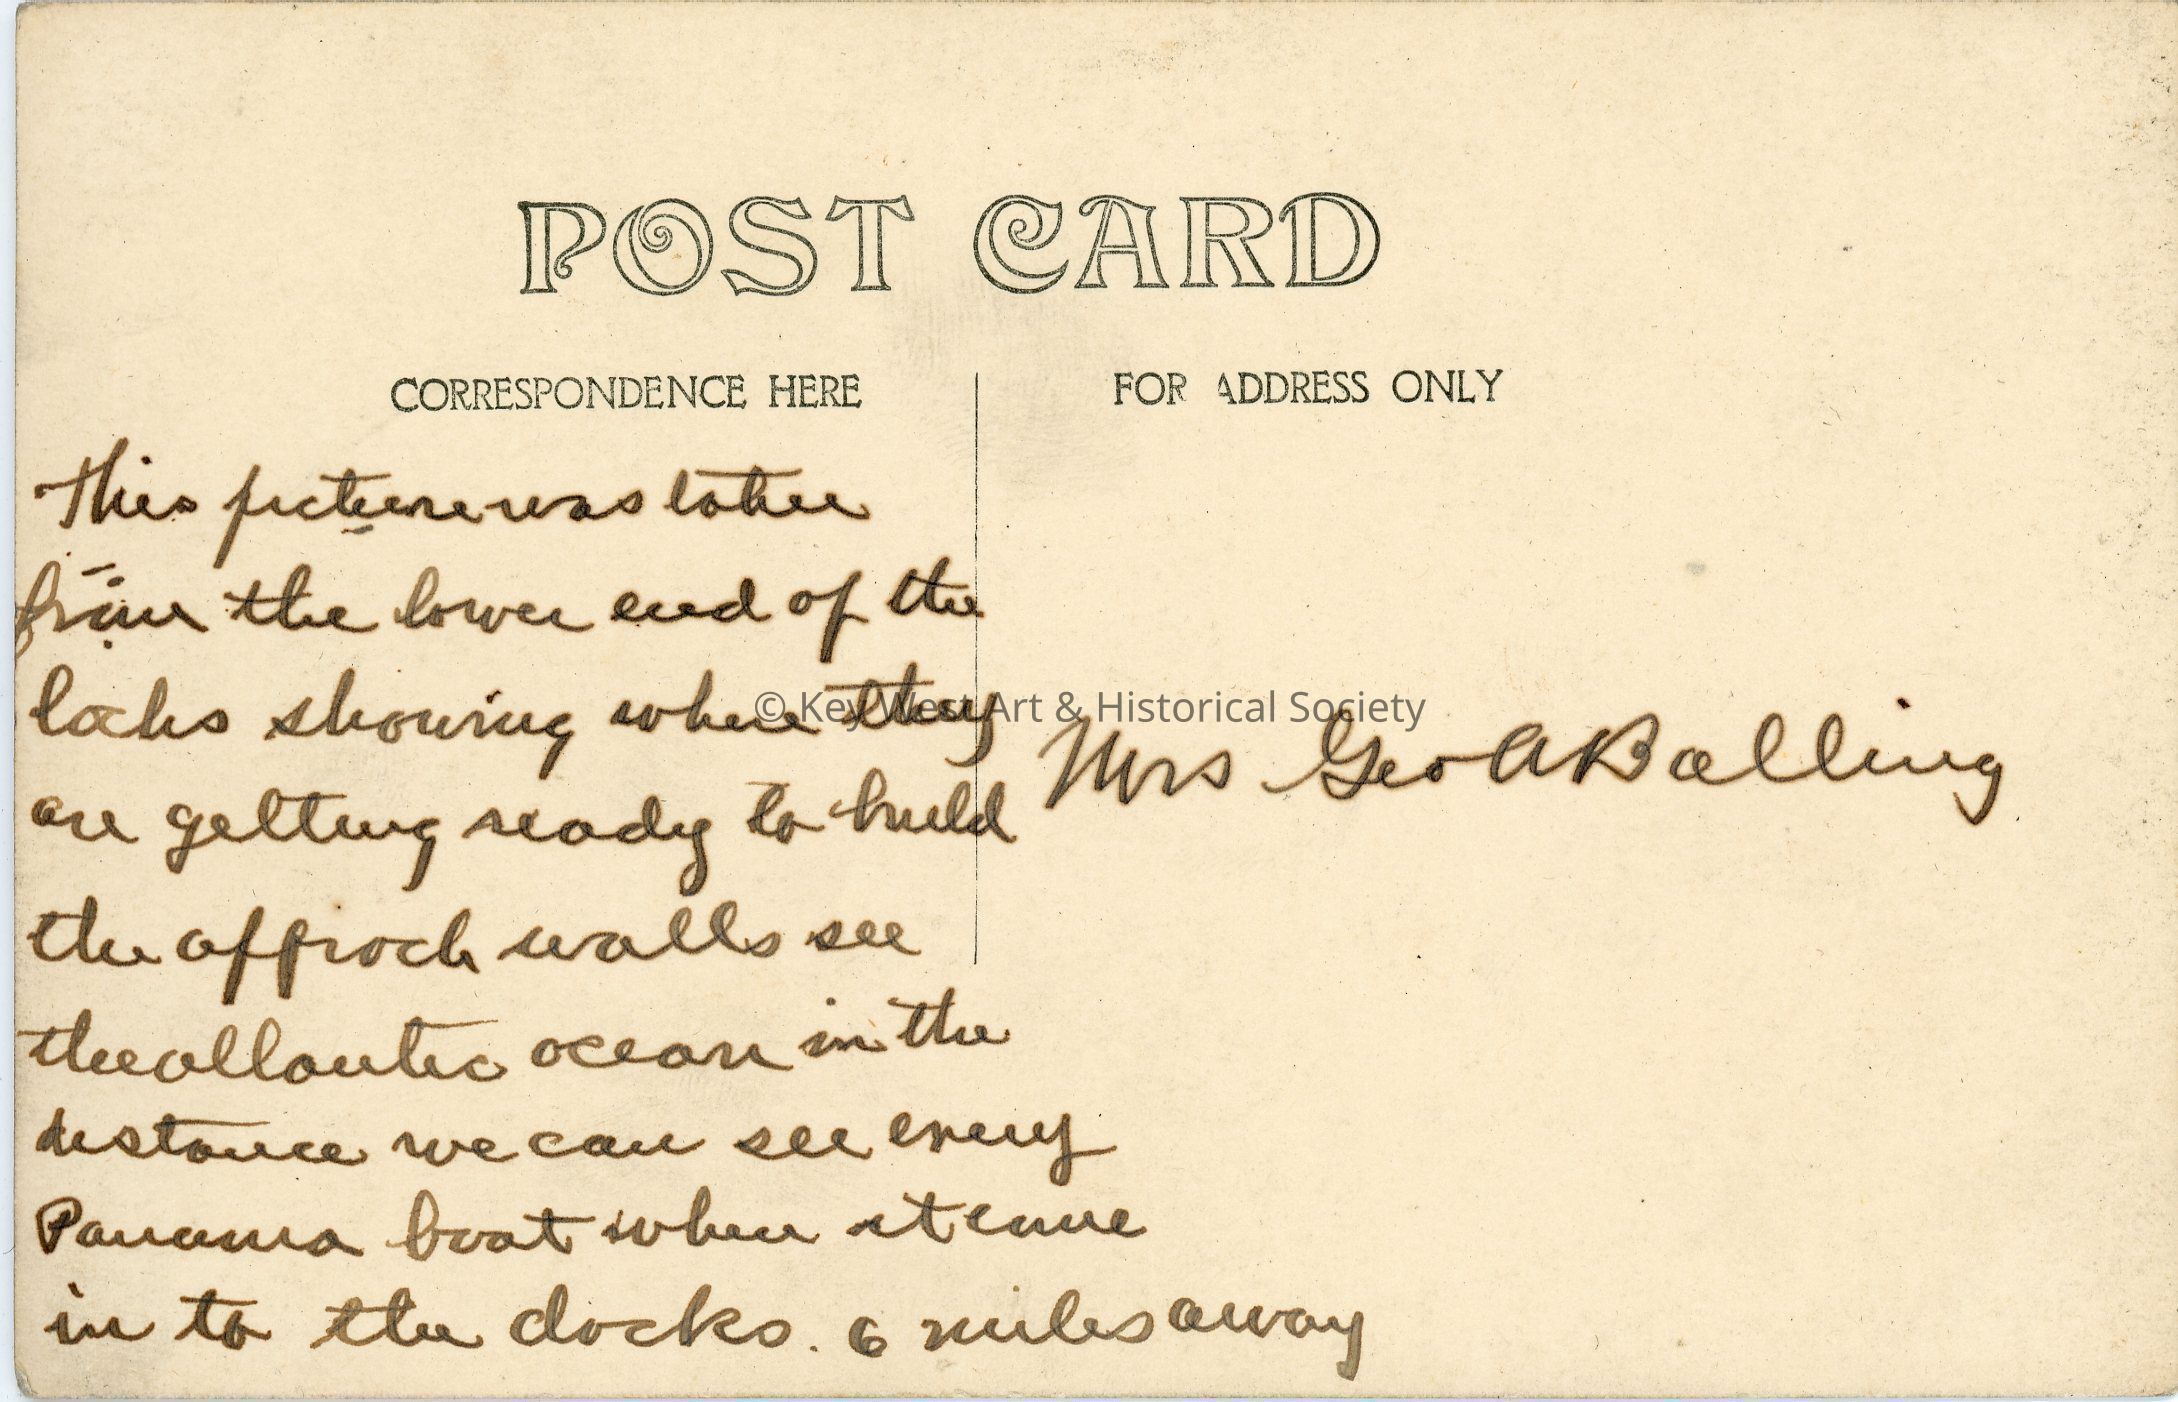 POST CARD
CORRESPONDENCE HERE
FOR ADDRESS ONLY
This picture was taken
from the lower end of the
locks showing where they
are getting ready to build
the approch walls see
the atlantic ocean in the
distance we can see every
Panama boat when it come
in to the docks. 6 miles away
Mrs Geo A Balling
© Key West Art & Historical Society